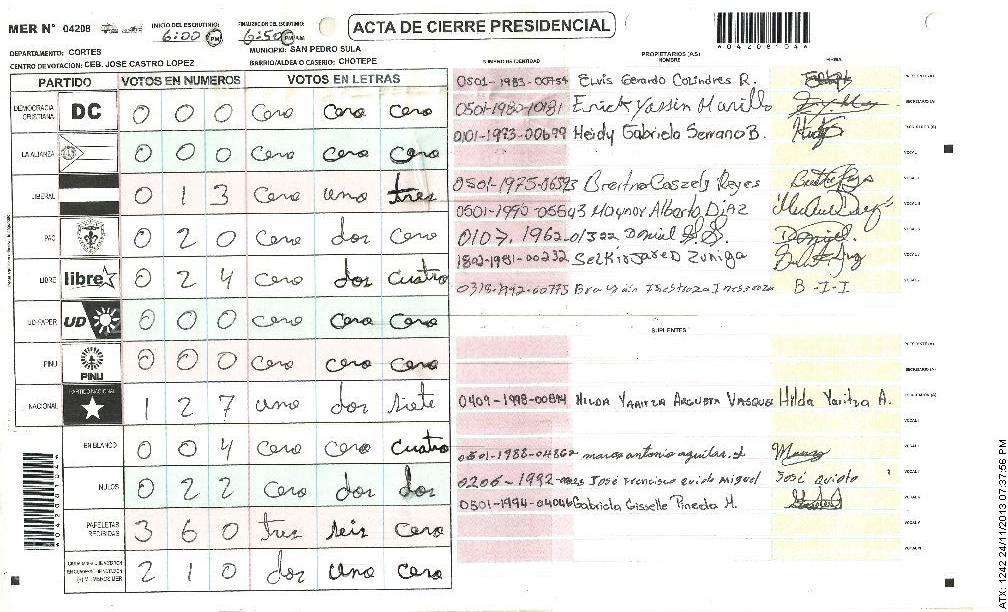 MER Nº 04208
INICIO DEL ESCRUTINIO: 6:00 PM
FINALIZACION DEL ESCRUTINIO: 6:50 PM
ACTA DE CIERRE PRESIDENCIAL
*04208104*
DEPARTAMENTO: CORTES
MUNICIPIO: SAN PEDRO SULA
CENTRO DE VOTACION: CEB. JOSE CASTRO LOPEZ
BARRIO/ALDEA O CASERIO: CHOTEPE
PARTIDO VOTOS EN NUMEROS VOTOS EN LETRAS
DEMOCRACIA CRISTIANA DC 0 0 0 Cero Cero Cero
LA ALIANZA 0 0 0 Cero Cero Cero
LIBERAL 0 1 3 Cero uno tres
PAC 0 2 0 Cero dos Cero
LIBRE libre 0 2 4 Cero dos Cuatro
UD-FAPER UD 0 0 0 Cero Cero Cero
PINU PINU 0 0 0 Cero Cero Cero
NACIONAL PARTIDO NACIONAL 1 2 7 uno dos siete
EN BLANCO 0 0 4 Cero Cero Cuatro
NULOS 0 2 2 Cero dos dos
PAPELETAS RECIBIDAS 3 6 0 tres seis Cero
2 1 0 dos uno Cero
NUMERO DE IDENTIDAD PROPIETARIOS (AS) NOMBRE FIRMA
0501-1983-00754 Elvis Gerardo Colindres R. PRESIDENTE (A)
0501-1980-10181 Erick Yassin Murillo SECRETARIO (A)
0101-1973-00699 Heidy Gabriela Serrano B.
VOCAL I
0501-1975-06593 Reyes
0501-1990-05643 Maynor Alberto Diaz
0107-1962-01322 Daniel Daniel.
1802-1981-00232 Selkin Jared Zuniga
0318-1992-00775 B-I-I
SUPLENTES
PRESIDENTE (A)
SECRETARIO (A)
Hilda Yaritza Argueta Vasque Hilda Yaritza A.
0501-1988-04862 marcos antonio aguilar
0206-1992 José Francisco Quido Miguel José Quido
0501-1994-04046 Gabriela Gisselle Pineda M.
*04208104*
ATX: 1242 24/11/2013 07:37:56 PM